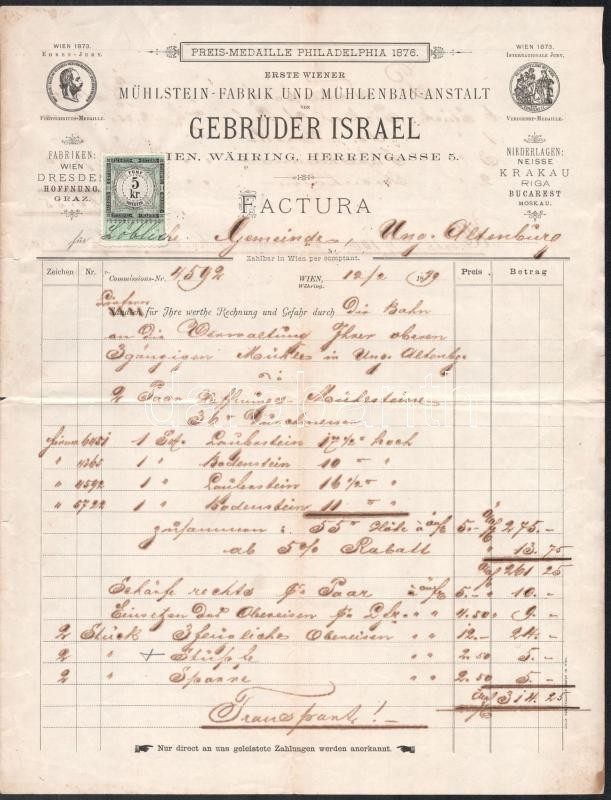 WIEN 1873.
EHREN-JURY.
FORTSCHRITTS-MEDAILLE.
PREIS-MEDAILLE PHILADELPHIA 1876.
WIEN 1873.
INTERNATIONALE JURY.
VERDIENST-MEDAILLE.
ERSTE WIENER
MÜHLSTEIN-FABRIK UND MÜHLENBAU-ANSTALT
VON
GEBRÜDER ISRAEL
IEN, WÄHRING, HERRENGASSE 5.
FABRIKEN:
WIEN
DRESDE
HOFFNUNG
GRAZ.
NIEDERLAGEN:
NEISSE
KRAKAU
RIGA
BUCAREST
MOSKAU.
FÜNF
5
kr.
FACTURA
für Löbliche Gemeinde, Ung. Altenburg
Zahlbar in Wien per comptant.
Zeichen Nr. Commissions-Nr. 4592 WIEN, 12/2 1879 Preis Betrag
Währing.
Liefern
für Ihre werthe Rechnung und Gefahr durch Die Bahn
an die Verwaltung Ihrer oberen
3gängigen Mühle in Ung. Altenbg.
2 Paar Hoffnungs-Mühlsteine
36" Durchmesser
Firma 6451 1 Laufrstein 17 1/2" hoch
" 4365 1 " Bodenstein 10 " "
" 4592 1 " Lauferstein 16 1/2 " "
" 5722 1 " Bodenstein 11 " "
zusammen: 55" Höhe à 5.- 275.-
ab 5% Rabatt " 13.75
261 25
Schärfe rechts pr Paar à 5.- " 10.-
Einsetzen der Obereisen pr " " 4.50 " 9.-
2 Stück 3flügliche Obereisen " " 12.- " 24.-
2 " " " 2.50 " 5.-
2 " Spanne " " 2.50 " 5.-
314.25
Transport!
Nur direct an uns geleistete Zahlungen werden anerkannt.
darabanth